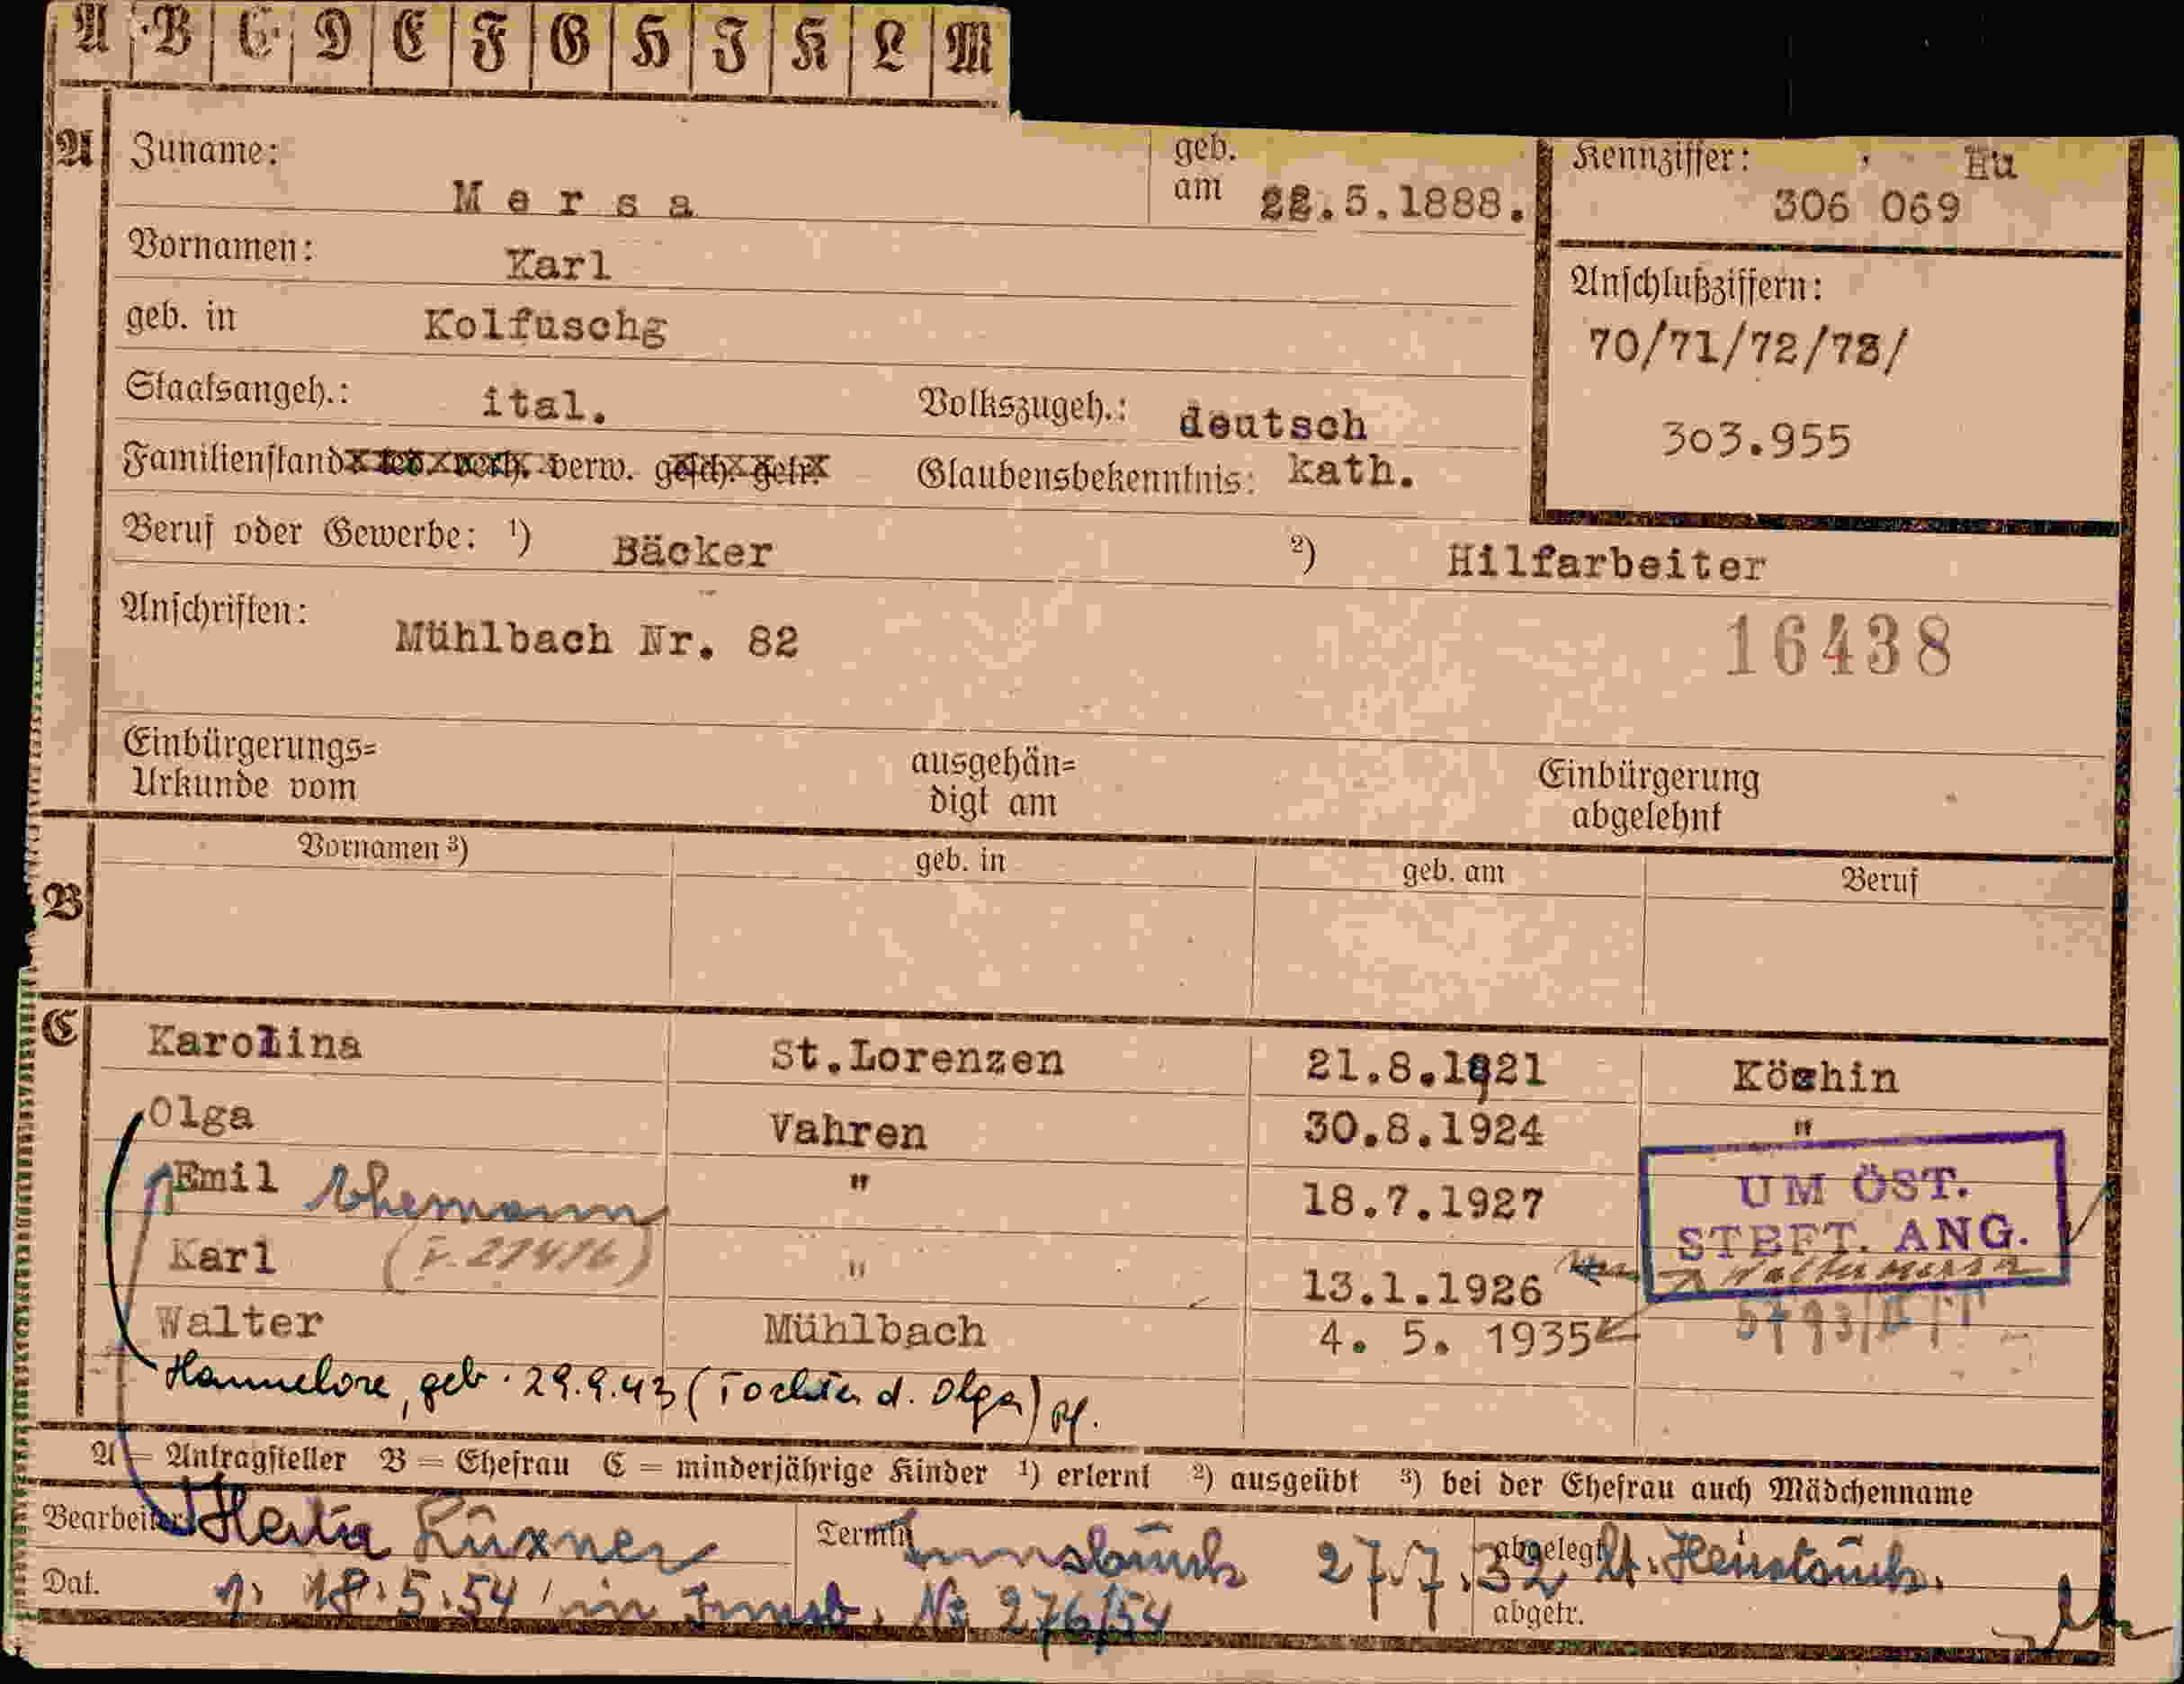 A B C D E F G H I K L M
A Zuname: Mersa geb. am 22.5.1888. Kennziffer: Hu 306 069
Vornamen: Karl
geb. in Kolfuschg Anschlußziffern: 70/71/72/73/
Staatsangeh.: ital. Volkszugeh.: deutsch 303.955
Familienstand led. verh. verw. gesch. getr. Glaubensbekenntnis: kath.
Beruf oder Gewerbe: 1) Bäcker 2) Hilfarbeiter
Anschriften: Mühlbach Nr. 82 16438
Einbürgerungs= ausgehän= Einbürgerung
Urkunde vom digt am abgelehnt
Vornamen 3) geb. in geb. am Beruf
B
C Karolina St.Lorenzen 21.8.1921 Köchin
Olga Vahren 30.8.1924 "
Emil Ehemann " 18.7.1927 UM ÖST.
STBFT. ANG.
Karl " 13.1.1926 Walter Mersa
Walter Mühlbach 4. 5. 1935
Hannelore, geb. 29.9.43 (Tochter d. Olga)
A = Antragsteller B = Ehefrau C = minderjährige Kinder 1) erlernt 2) ausgeübt 3) bei der Ehefrau auch Mädchenname
Bearbeiter: Herta Termin Innsbruck 27.7.32 abgelegt
Dat. 18.5.54 in Innsb. No 276/54 abgetr.